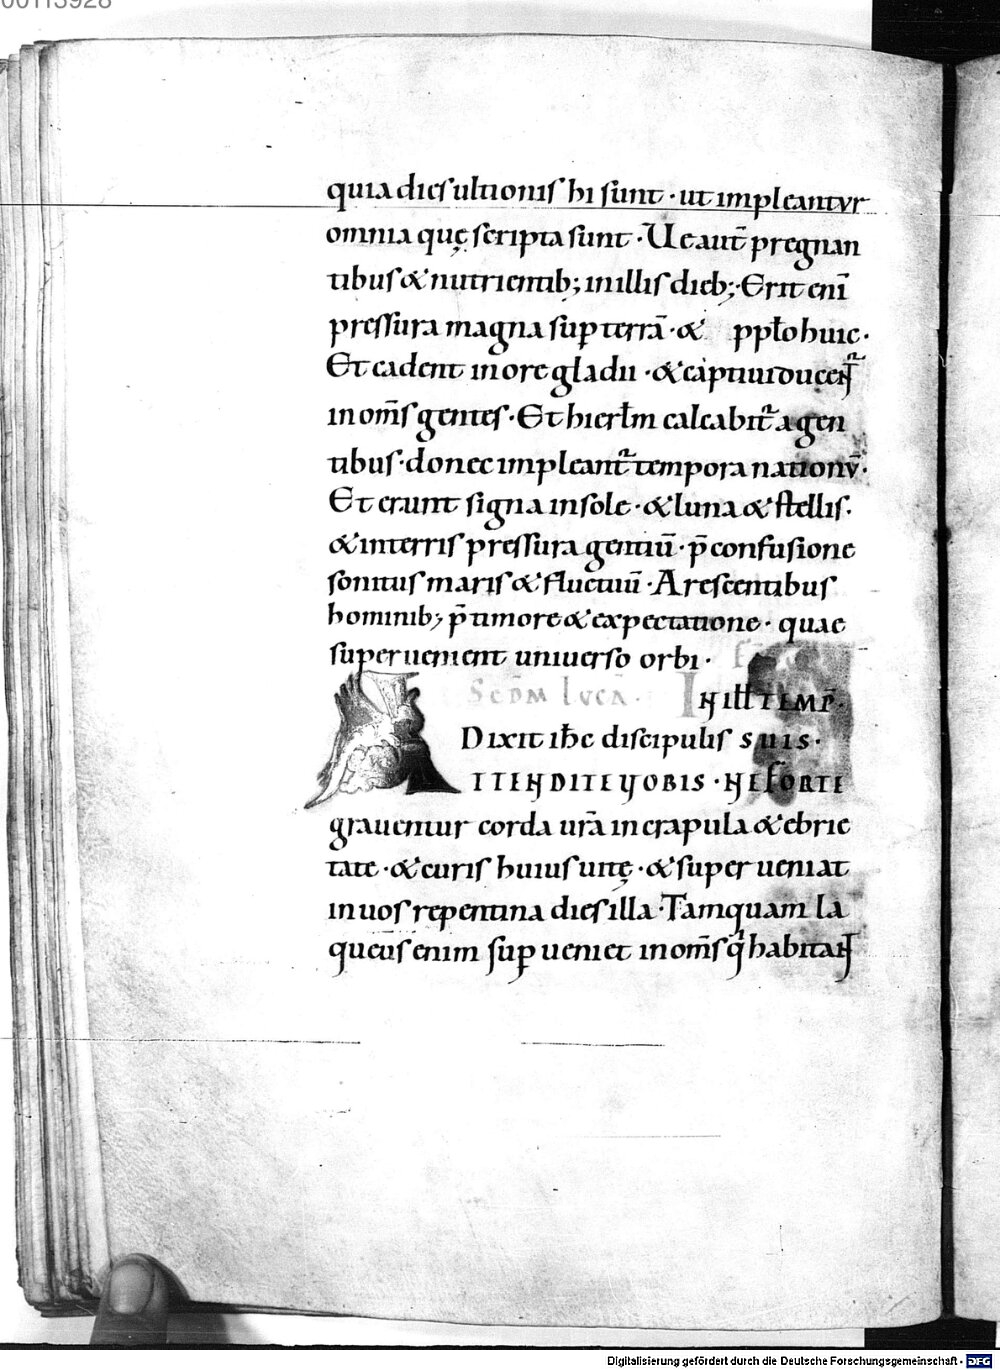 00113928
quia dies ultionis hi sunt · ut impleantur
omnia quę scripta sunt · Ue aut̄ pregnan
tibus & nutrientib; in illis dieb; · Erit eni̅
pressura magna sup terrā · & pplo huic ·
Et cadent in ore gladii · & captiui ducent̄
in om̄s gentes · Et hierłm calcabit̄ a gen
tibus · donec impleant̄ tempora nationū ·
Et erunt signa in sole · & luna & stellis ·
& in terris pressura gentiū · p̄ confusione
sonitus maris & fluctuū · Arescentibus
hominib; p̄ timore & expectatione · quae
superuenient uniuerso orbi ·
Scd̄m lucā · IN ILL TEMP̄ ·
Dixit ihc discipulis suis ·
ATTENDITE VOBIS · NE FORTE
grauentur corda urā in crapula & ebrie
tate · & curis huius uitę · & super ueniat
in uos repentina dies illa · Tamquam la
queus enim sup ueniet in om̄s q̇ habitant
Digitalisierung gefördert durch die Deutsche Forschungsgemeinschaft - DFG